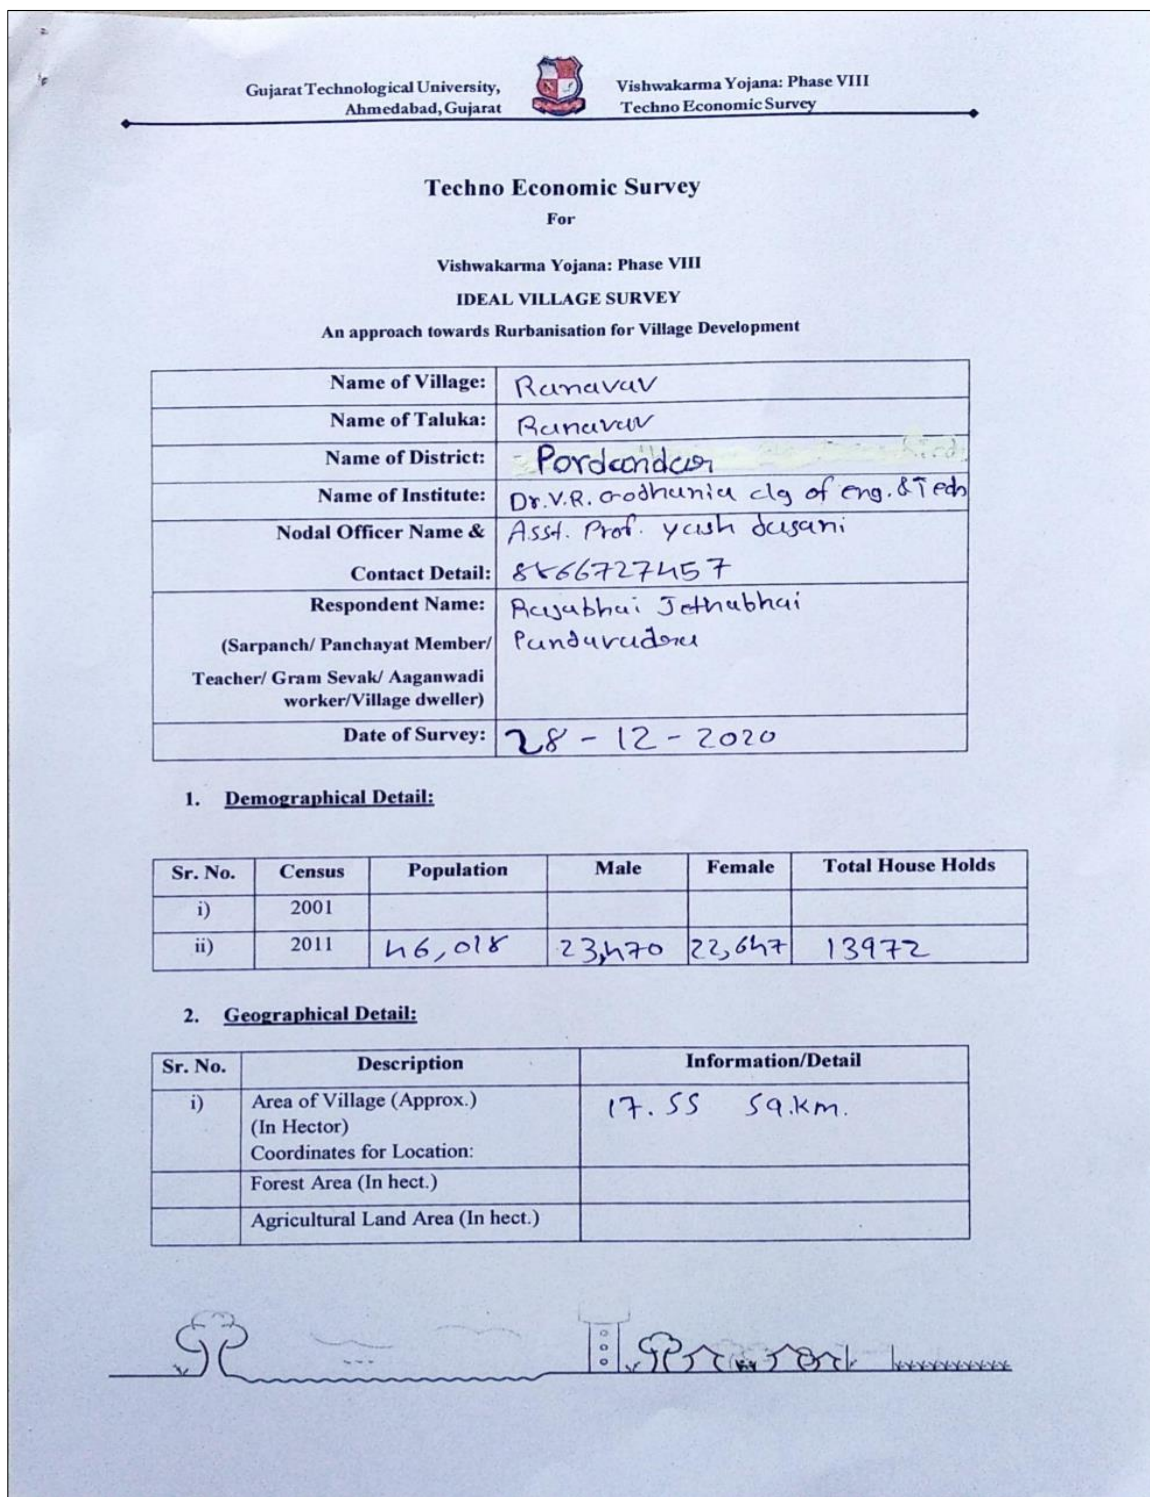 Gujarat Technological University,
Ahmedabad, Gujarat
Vishwakarma Yojana: Phase VIII
Techno Economic Survey
Techno Economic Survey
For
Vishwakarma Yojana: Phase VIII
IDEAL VILLAGE SURVEY
An approach towards Rurbanisation for Village Development
Name of Village: Ranavav
Name of Taluka: Ranavav
Name of District: Porbandar
Name of Institute: Dr.V.R. Godhania clg of eng. & Tech
Nodal Officer Name & Asst. Prof. Yash
Contact Detail: 8866727457
Respondent Name: Rajabhai Jethabhai
(Sarpanch/ Panchayat Member/ Pandavadara
Teacher/ Gram Sevak/ Aaganwadi
worker/Village dweller)
Date of Survey: 28-12-2020
1. Demographical Detail:
Sr. No. Census Population Male Female Total House Holds
i) 2001
ii) 2011 46,018 23,470 22,647 13972
2. Geographical Detail:
Sr. No. Description Information/Detail
i) Area of Village (Approx.) 17.55 sq.km.
(In Hector)
Coordinates for Location:
Forest Area (In hect.)
Agricultural Land Area (In hect.)